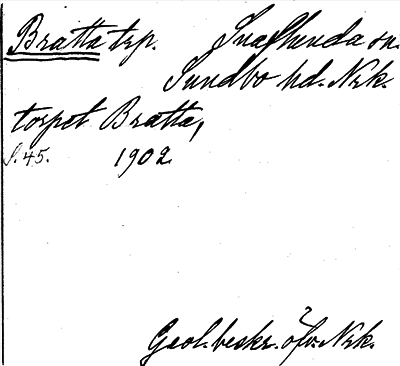 Bratta trp. Snaflunda sn.
Sundbo hd. Nrk.
torpet Bratta,
S. 45. 1902
Geol. beskr. öfv. Nrk.